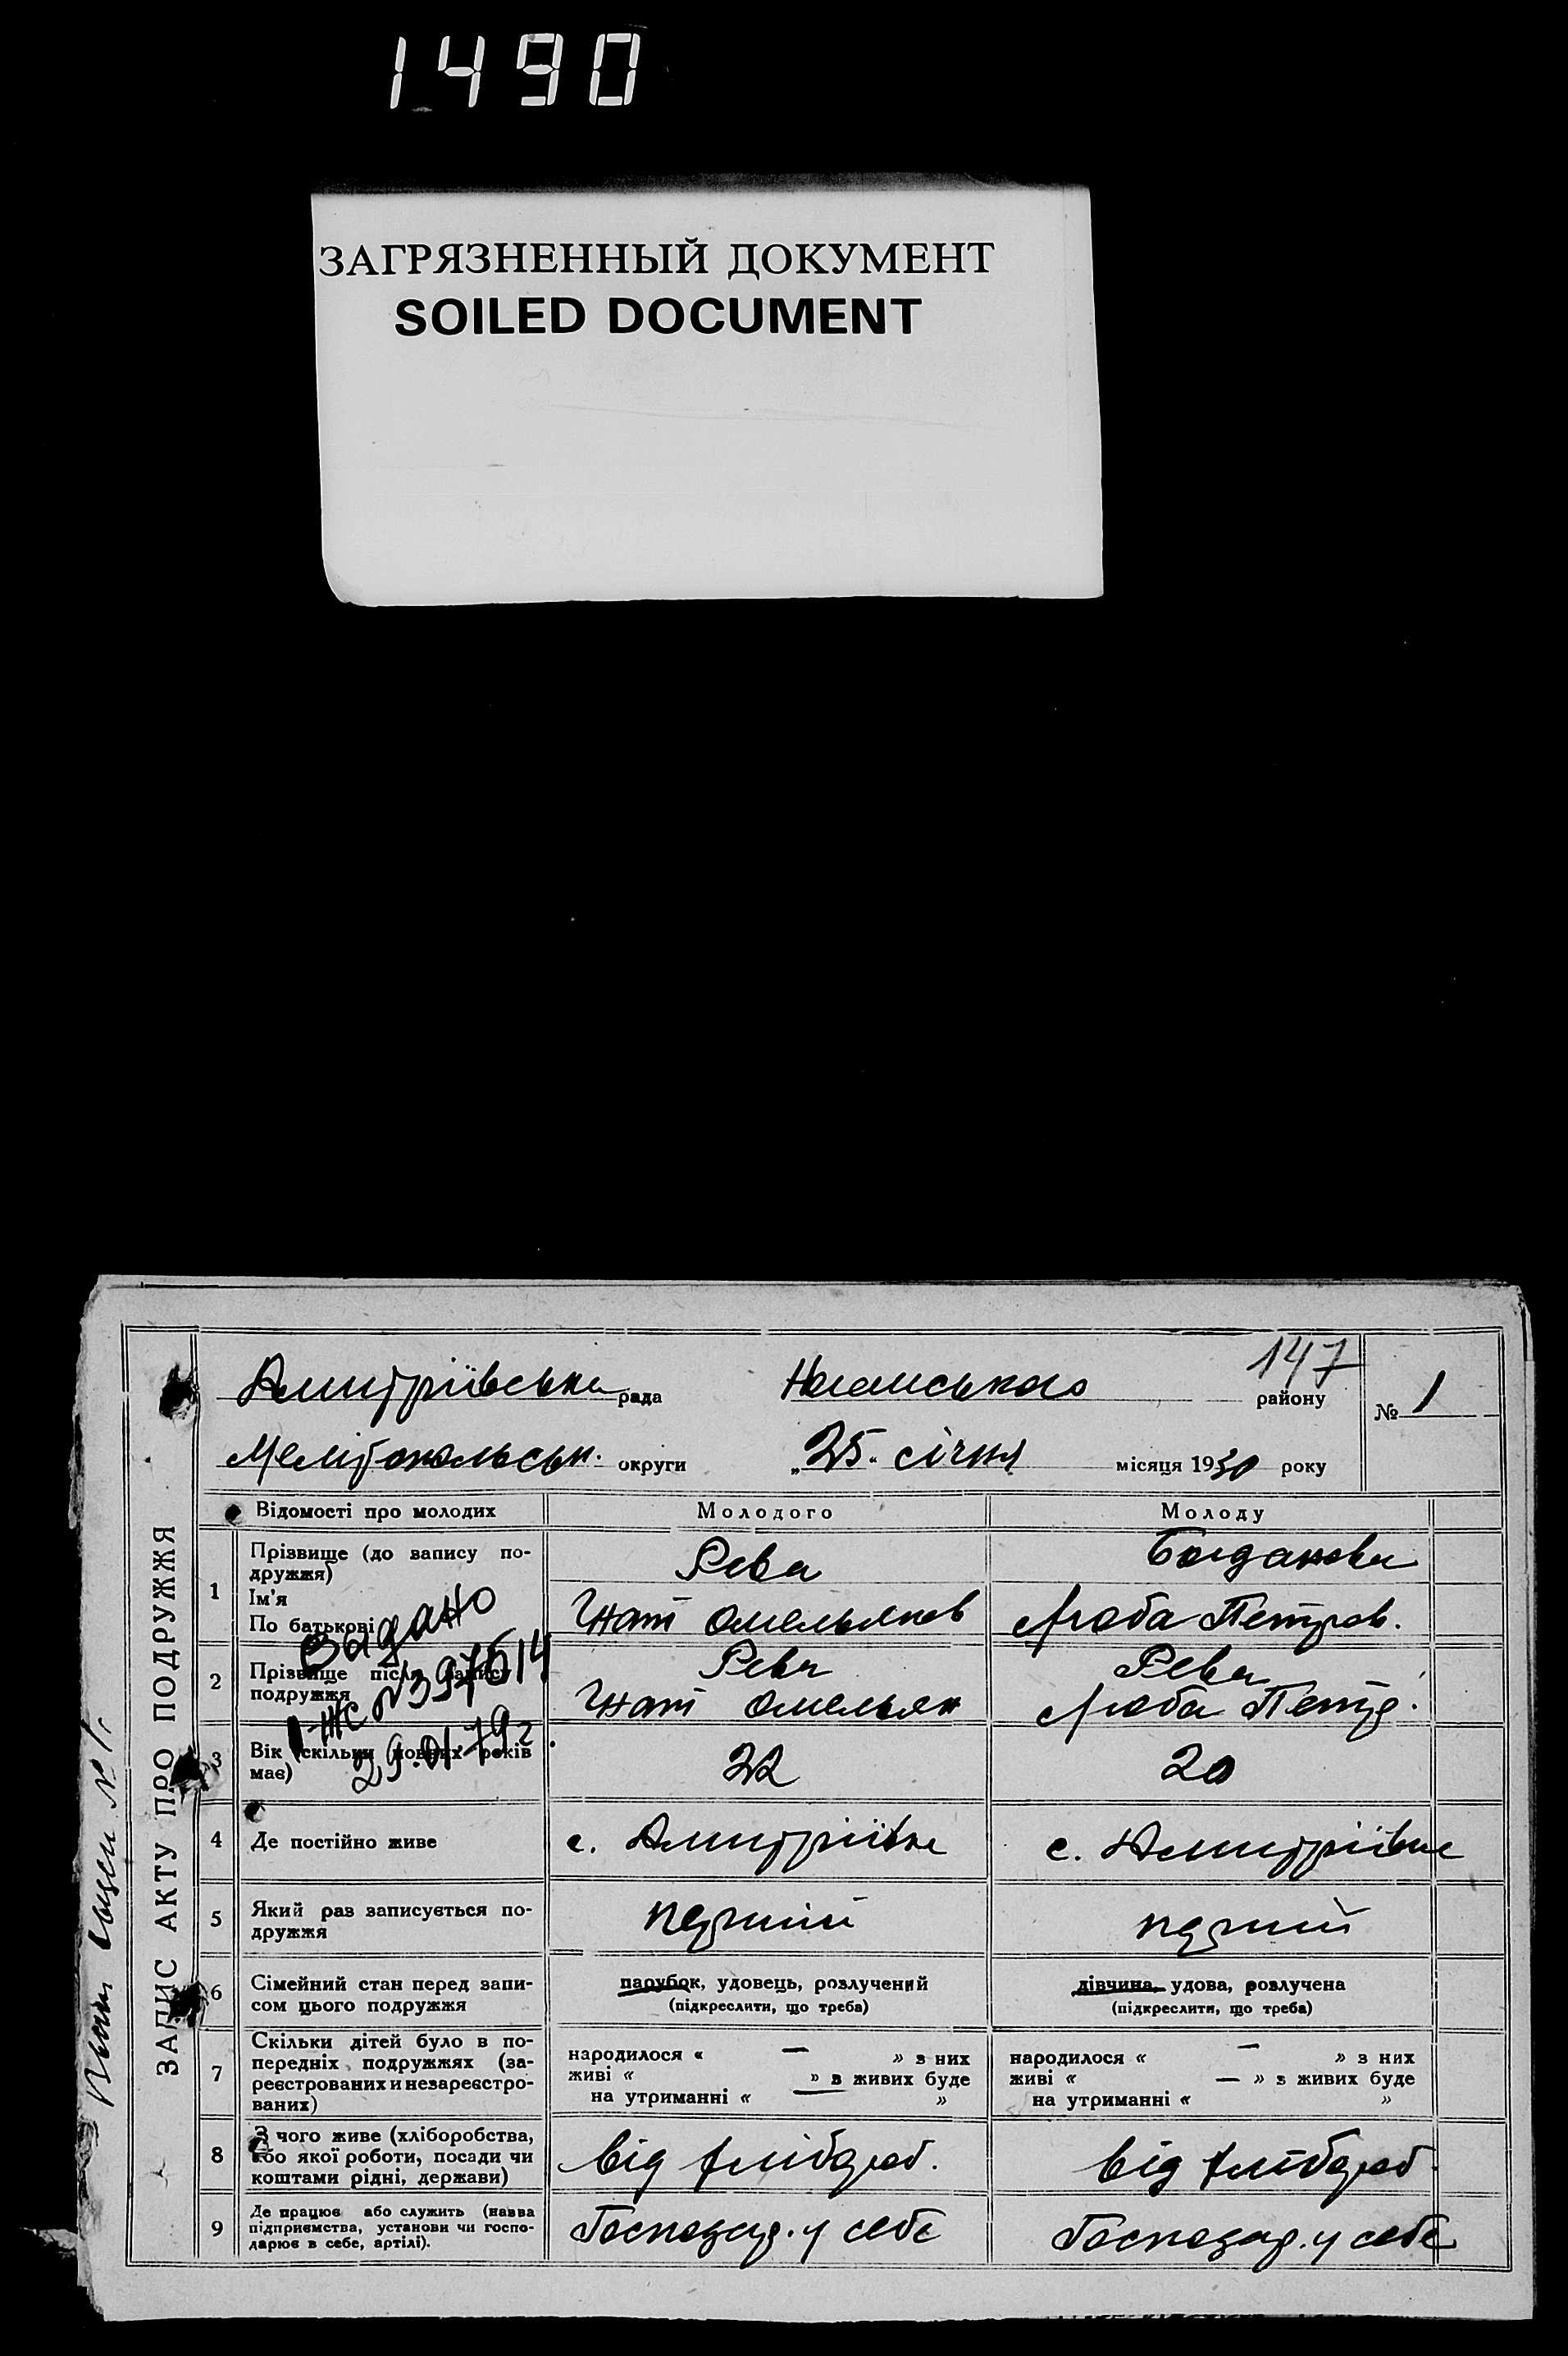 1490
ЗАГРЯЗНЕННЫЙ ДОКУМЕНТ
SOILED DOCUMENT
147
Дмитріївська рада Ногайського району № 1
Мелітопольськ. округи „25. січня місяця 1930 року
ЗАПИС АКТУ ПРО ПОДРУЖЖЯ
Відомості про молодих Молодого Молоду
1 Прізвище (до запису по-
дружжя)
Ім'я
По батькові
Рева
Гнат Омельянов
Богданова
Люба Петров.
2 Прізвище після запису
подружжя
Рева
Гнат Омельян
Рева
Люба Петр.
Видано
І-ЖС № 397614
29.01.79г.
3 Вік (скільки повних років
має)
22
20
4 Де постійно живе
с. Дмитріївка
с. Дмитріївка
5 Який раз записується по-
дружжя
перший
перший
6 Сімейний стан перед запи-
сом цього подружжя
парубок, удовець, розлучений
(підкреслити, що треба)
дівчина, удова, розлучена
(підкреслити, що треба)
7 Скільки дітей було в по-
передніх подружжях (за-
реєстрованих и незареєстро-
ваних)
народилося « — » з них
живі « » з живих буде
на утриманні « — »
народилося « — » з них
живі « — » з живих буде
на утриманні « »
8 З чого живе (хліборобства,
або якої роботи, посади чи
коштами рідні, держави)
від хлібороб.
від хлібороб.
9 Де працює або служить (назва
підприємства, установи чи госпо-
дарює в себе, артілі).
Господар. у себе
Господар. у себе